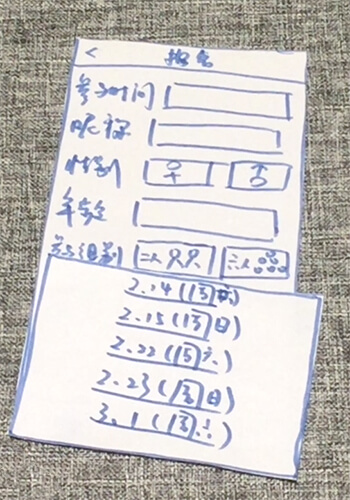 < 报名
参与时间
昵称
性别 ♀ ♂
年龄
参与组别 二人 三人
2.14(周六)
2.15(周日)
2.22(周六)
2.23(周日)
3.1(周六)